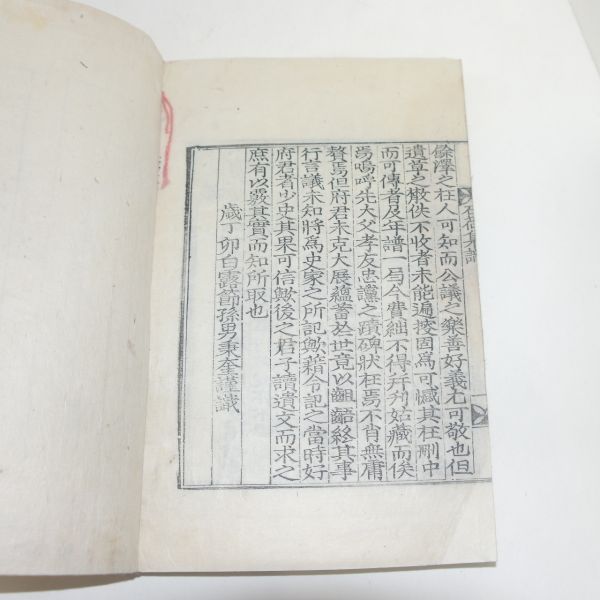 餘澤之在人可知而公議之樂善好義尤可敬也但
遺草之散佚不收者未能遍搜固爲可憾其在刪中
而可傳者及年譜一局今費絀不得幷刊姑藏而俟
焉嗚呼先大父孝友忠讜之蹟碑狀在焉不肖無庸
贅焉但府君未克大展蘊蓄於世竟以齟齬終其事
行言議未知將爲史家之所記歟藉令記之當時好
府君者少史其果可信歟後之君子讀遺文而求之
庶有以覈其實而知所取也
歲丁卯白露節孫男秉奎謹識